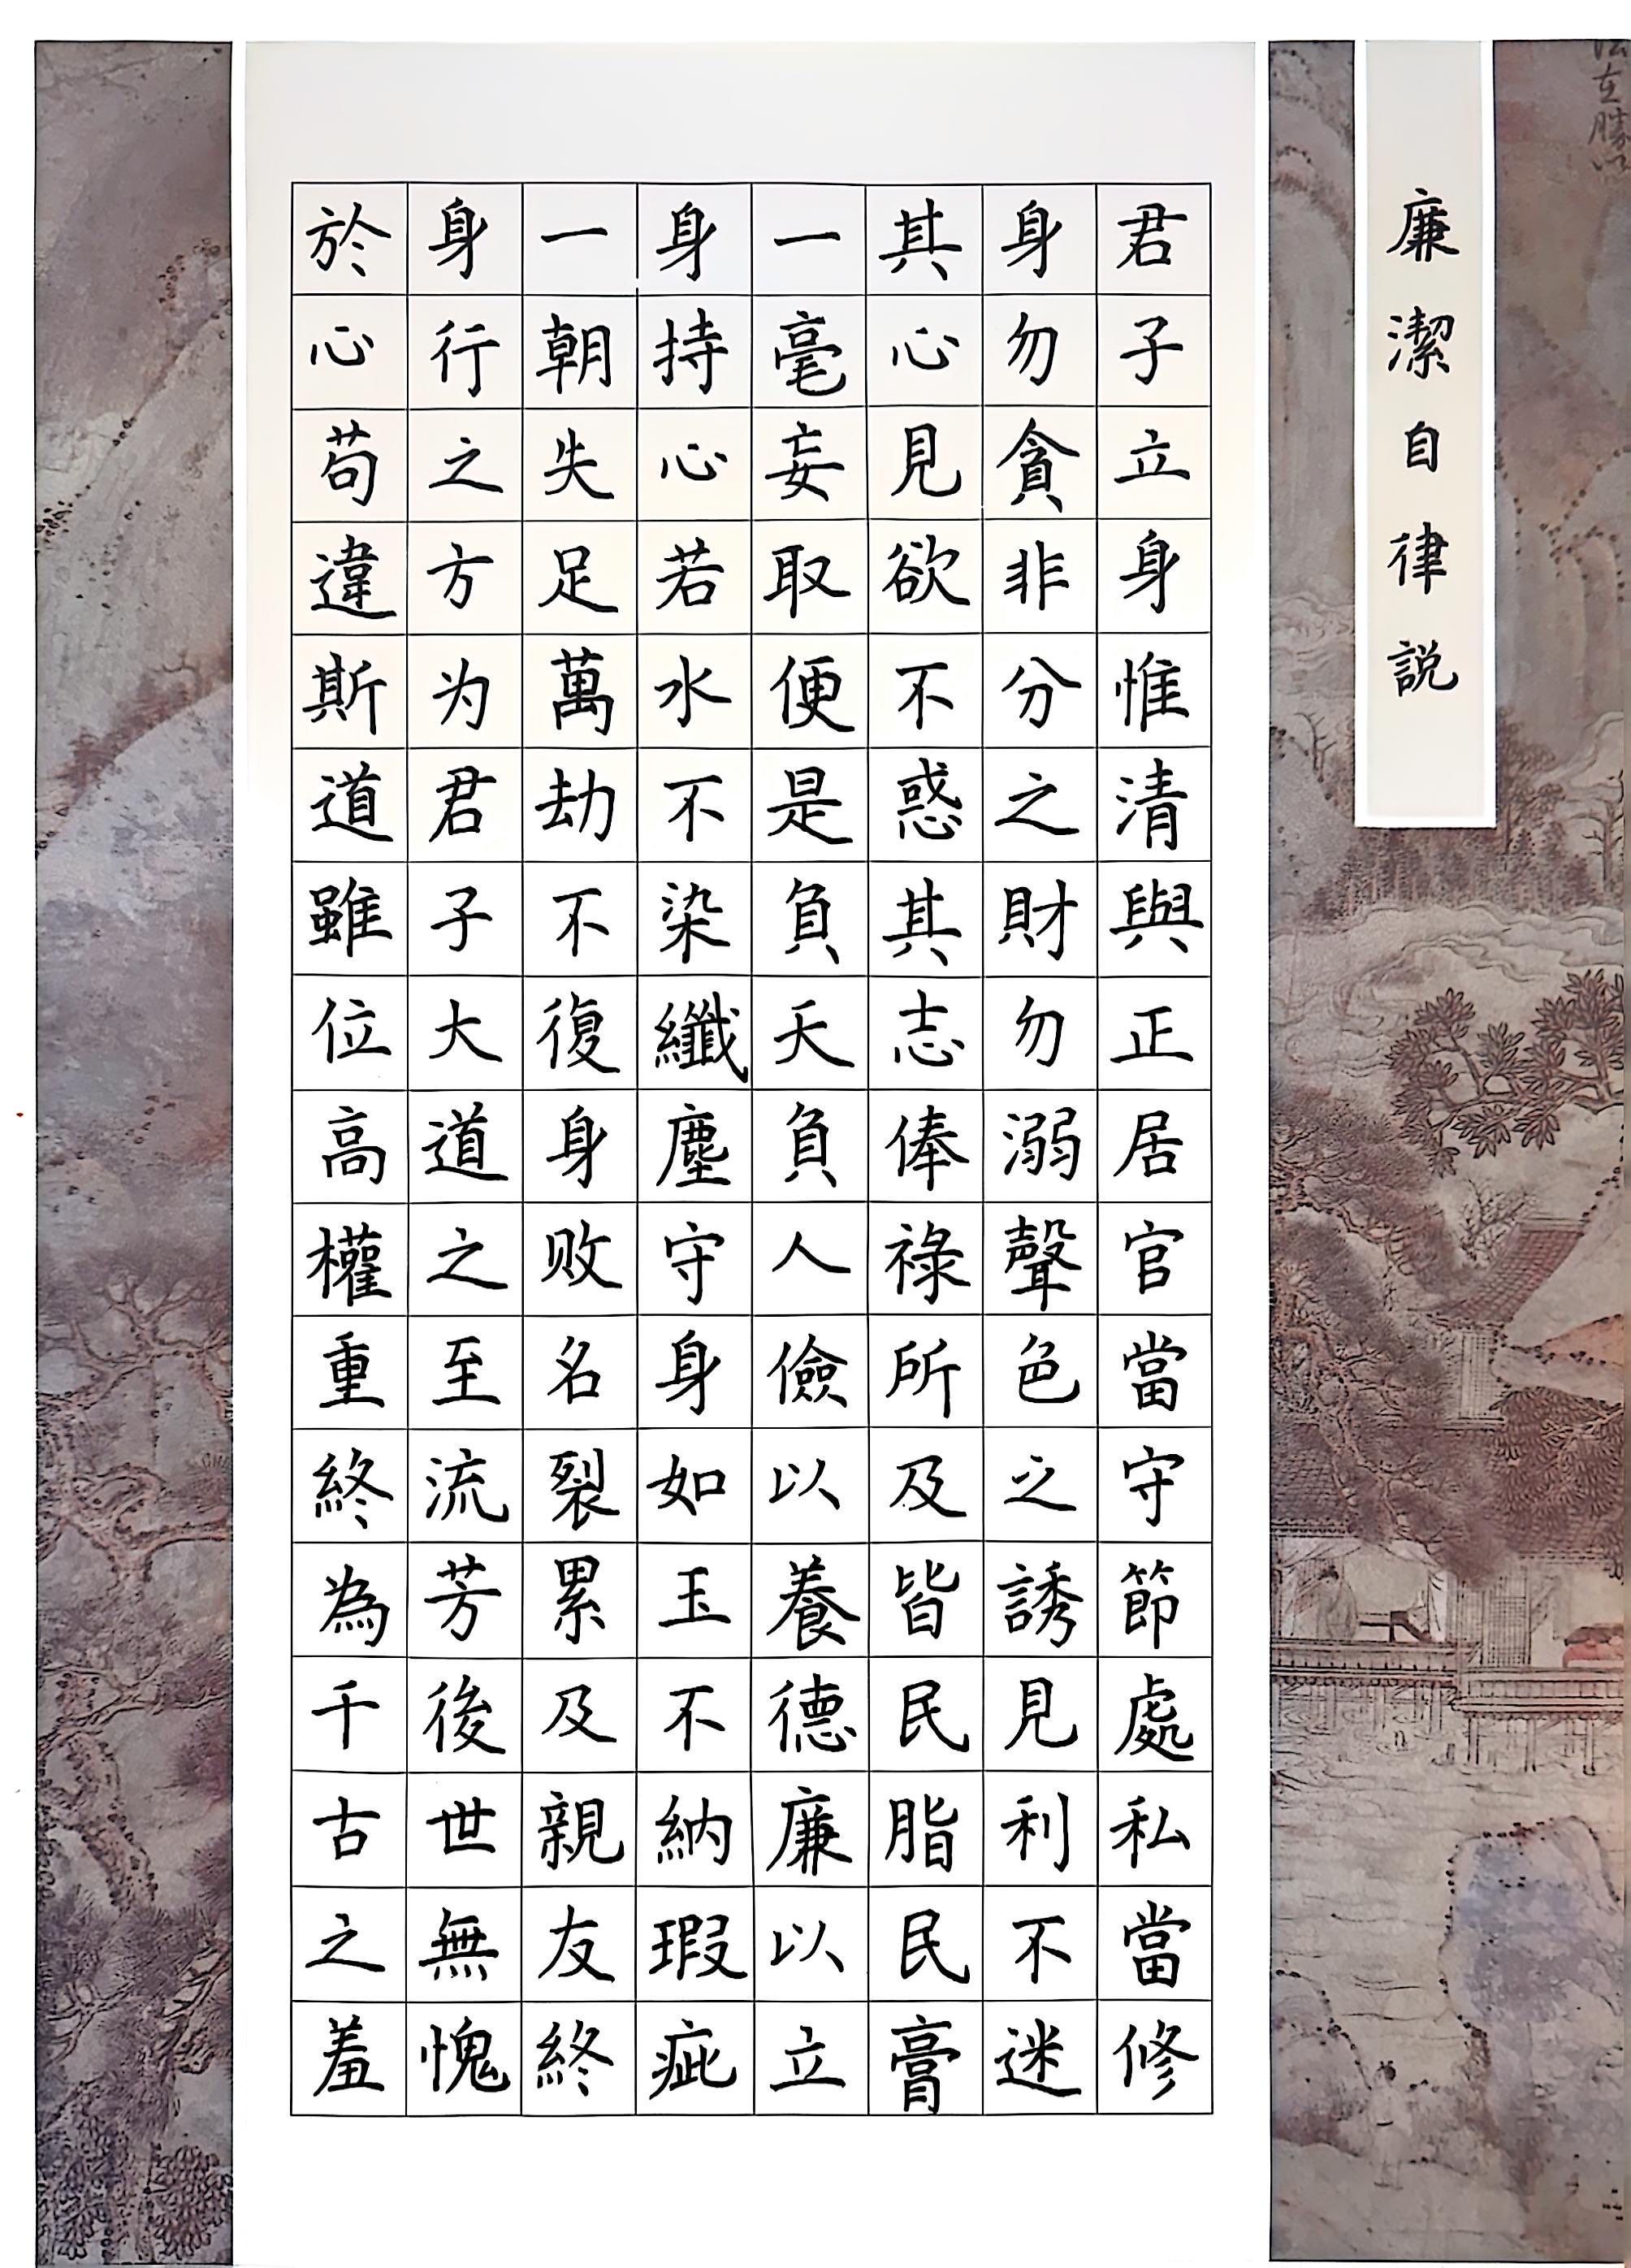 廉潔自律説
君子立身惟清與正居官當守節處私當修
身勿貪非分之財勿溺聲色之誘見利不迷
其心見欲不惑其志俸祿所及皆民脂民膏
一毫妄取便是負天負人儉以養德廉以立
身持心若水不染纖塵守身如玉不納瑕疵
一朝失足萬劫不復身败名裂累及親友終
身行之方为君子大道之至流芳後世無愧
於心苟違斯道雖位高權重終為千古之羞